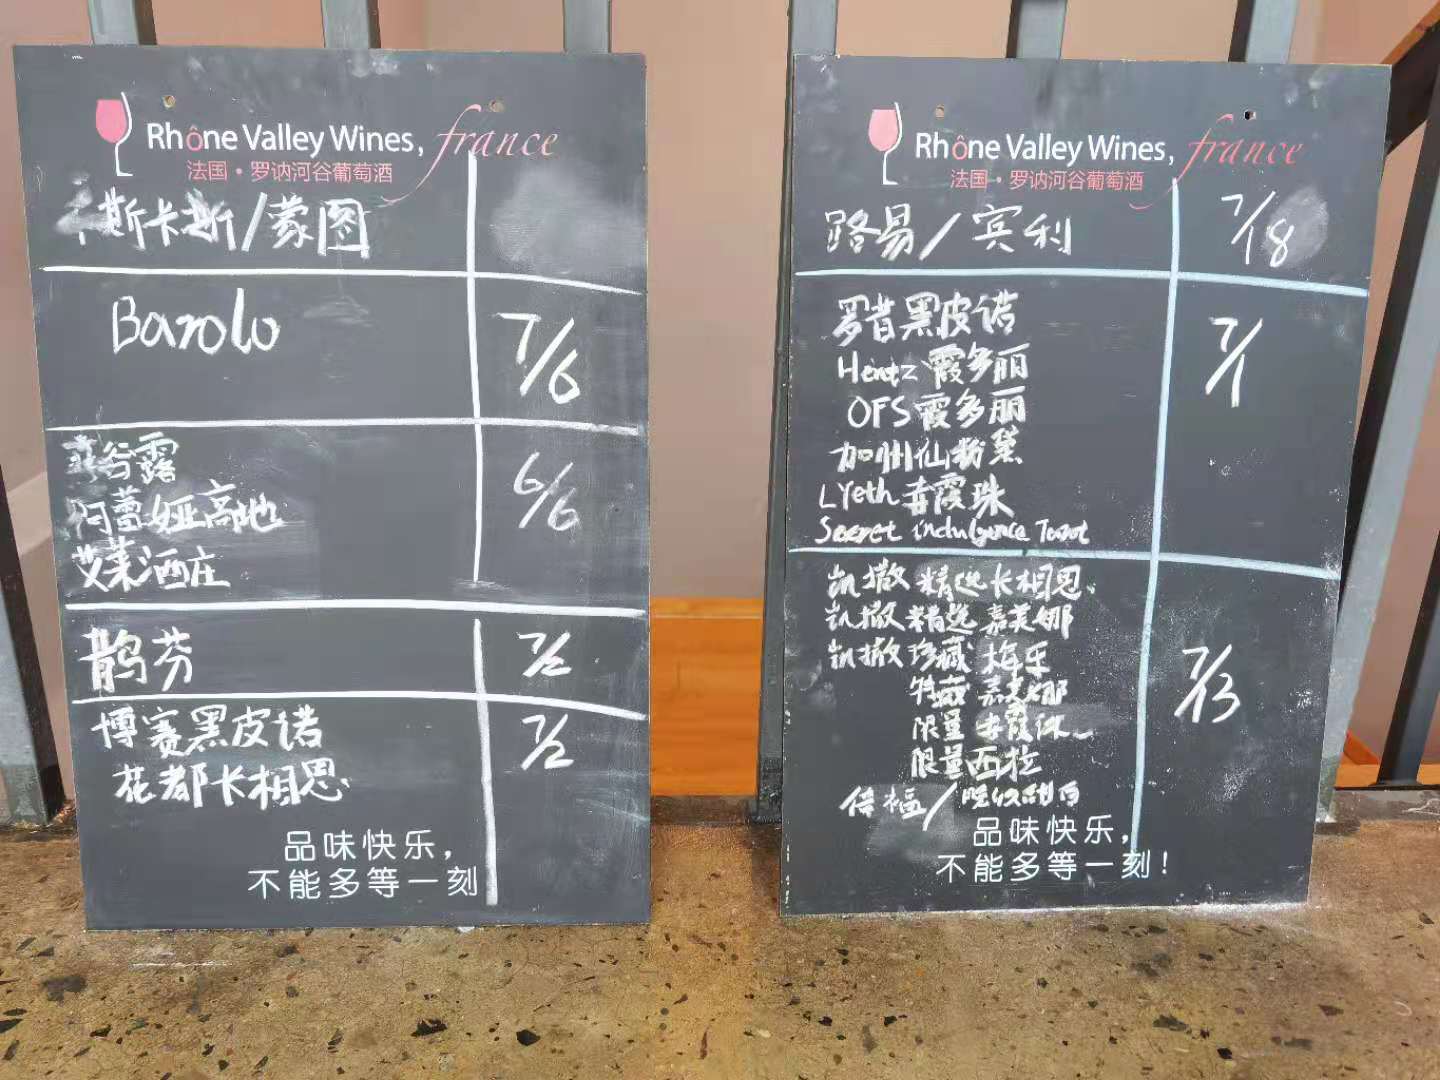 Rhône Valley Wines, france
法国·罗讷河谷葡萄酒
斯卡斯/蒙图
Barolo
7/6
谷露
阿蕾娅高地
6/6
艾莱酒庄
鹊芬
7/2
博赛黑皮诺
7/2
花都长相思
品味快乐，
不能多等一刻
Rhône Valley Wines, france
法国·罗讷河谷葡萄酒
路易/宾利
7/18
罗昔黑皮诺
7/1
Hentz 霞多丽
OFS 霞多丽
加州仙粉黛
LYeth 赤霞珠
Secret indulgence
凯撒 精选长相思
凯撒 精选 嘉美娜
凯撒 珍藏 梅乐
7/13
特藏 嘉美娜
限量 赤霞珠
限量西拉
倍福/
品味快乐，
不能多等一刻！